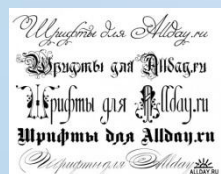 Шрифты для Allday.ru
Шрифты для Allday.ru
Шрифты для Allday.ru
Шрифты для Allday.ru
Шрифты для Allday
ALLDAY.RU